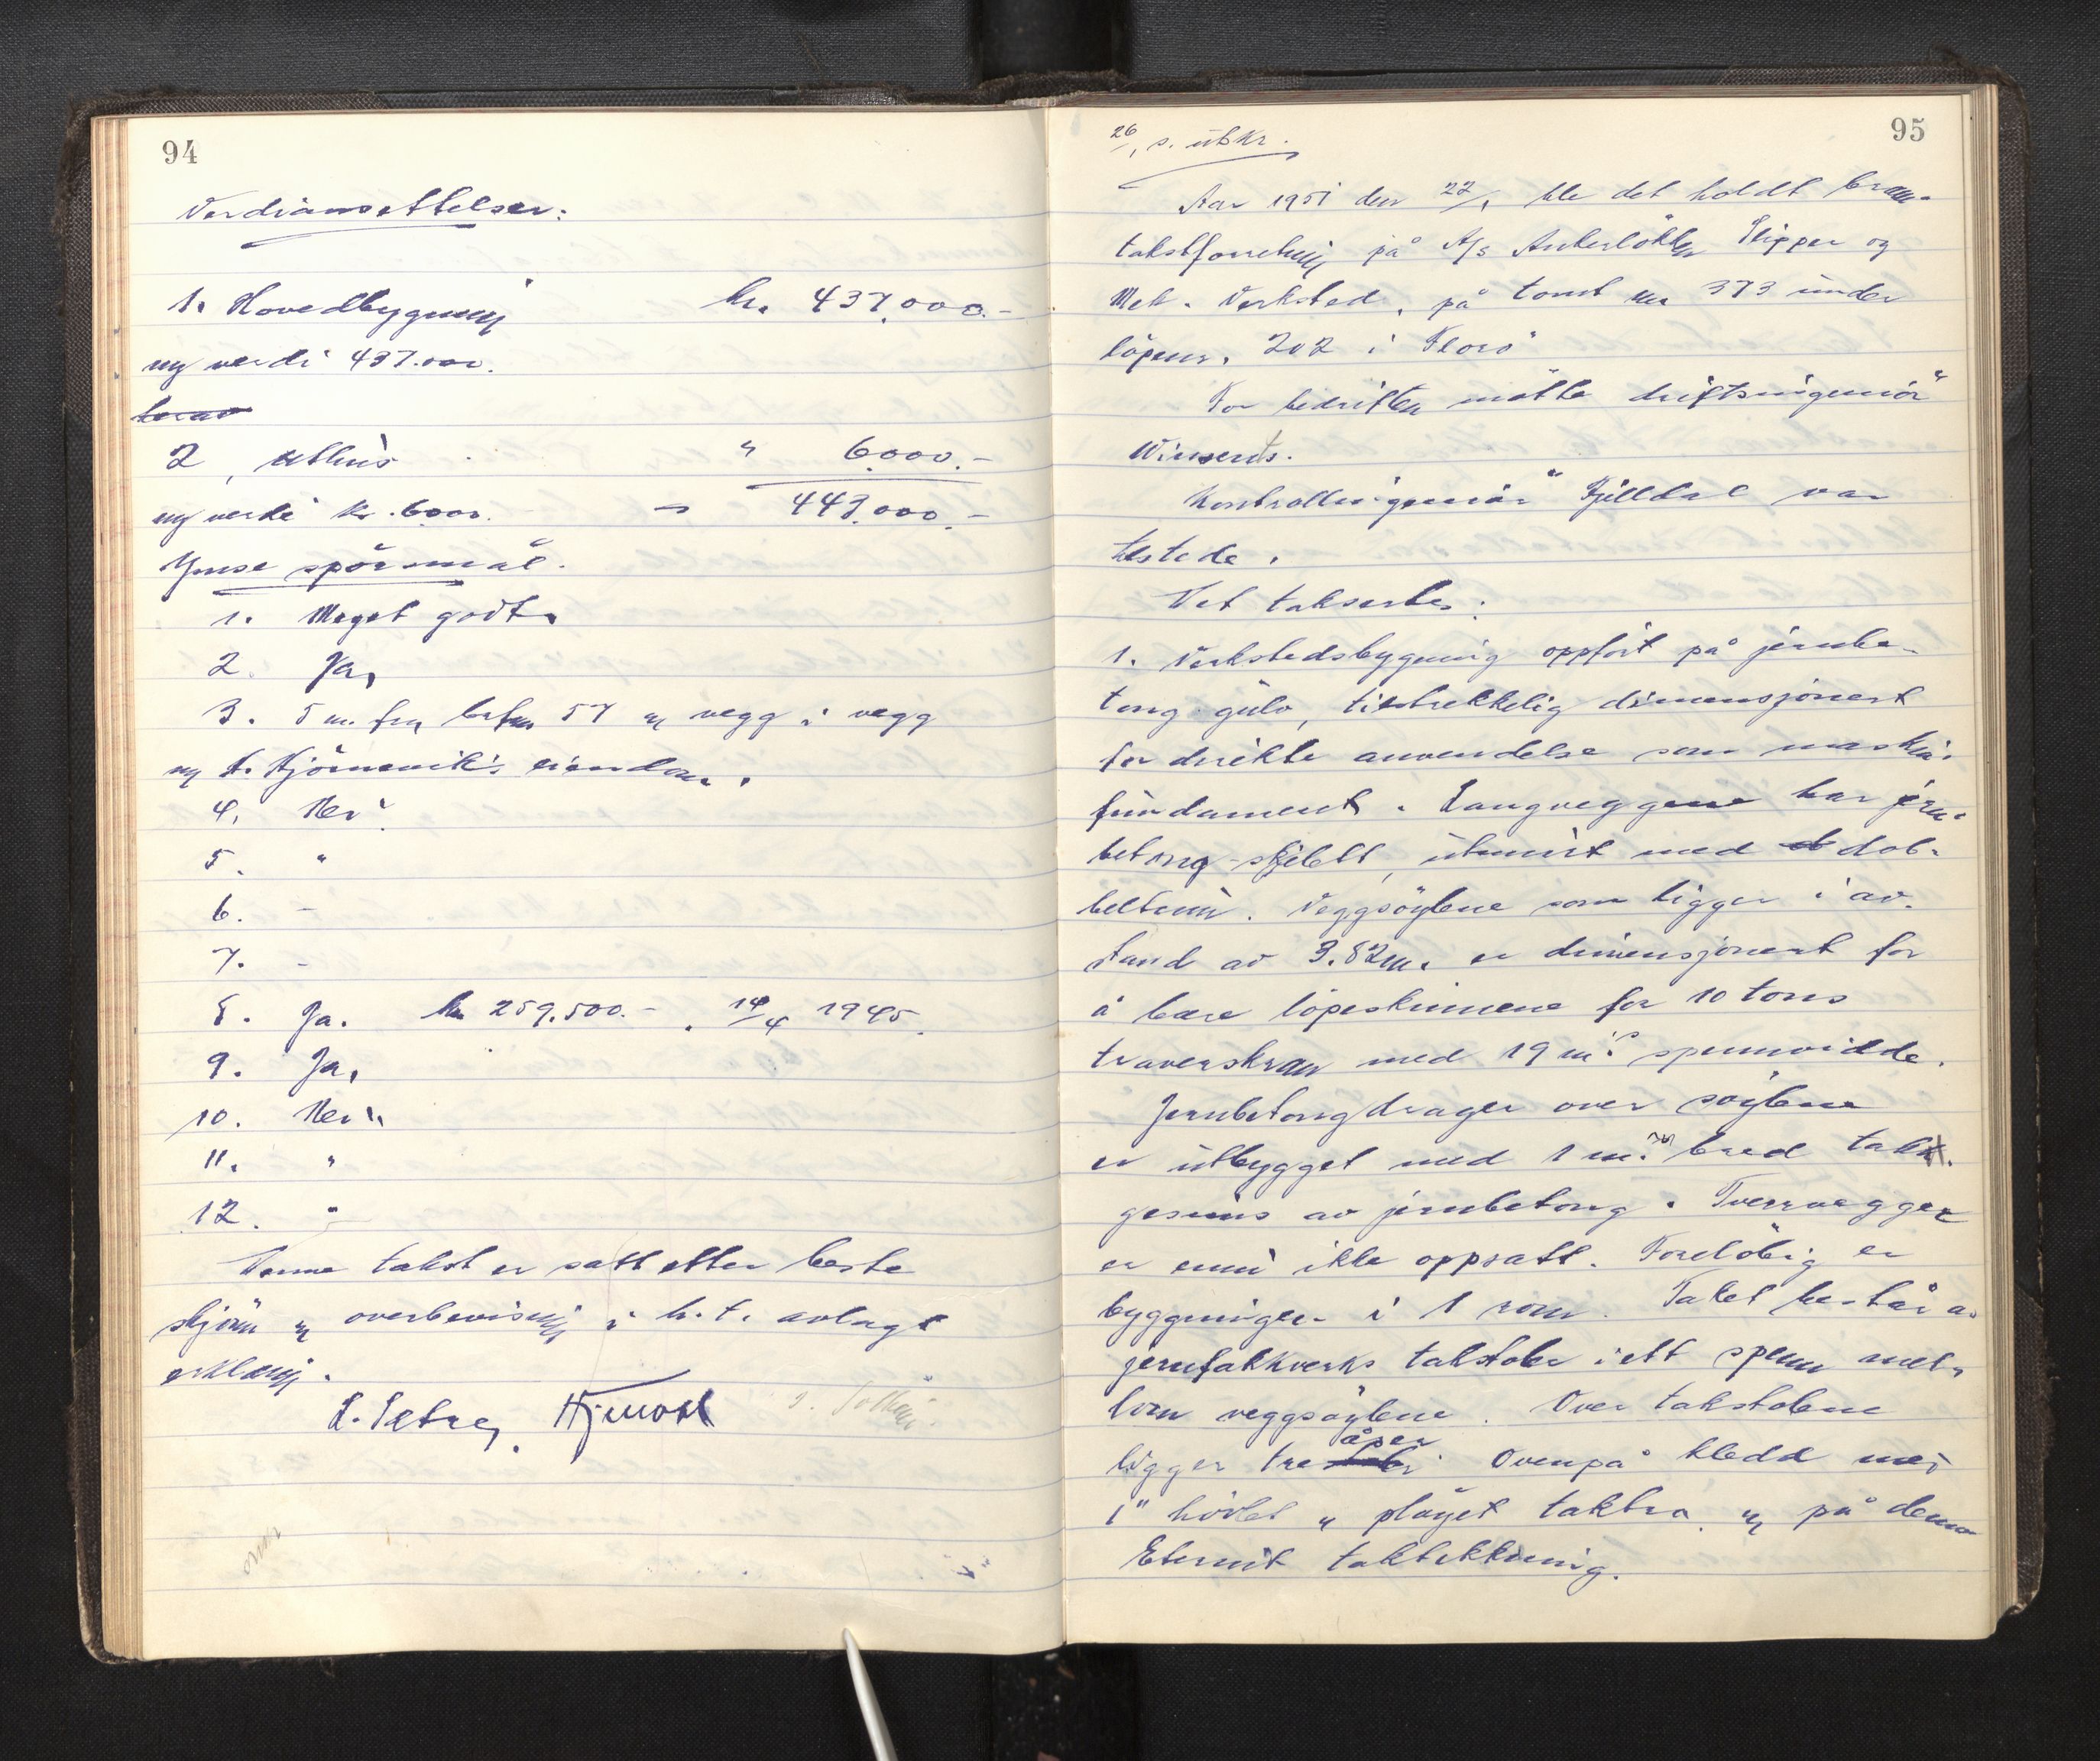 94
Verdiansettelser:
1. Hovedbygning kr. 437.000.-
ny verdi 437.000.
herav
2, uthus " 6000.-
ny verdi kr. 6000. - 443.000.-
Ymse spörsmål.
1. Meget godt.
2. Ja,
3. 5 m. fra brfnr 57 og vegg i vegg
og A. Hjörnevik's eiendom.
4. Nei
5. "
6. -
7. -
8. Ja. kr 259.500.- . 14/4 1945.
9. Ja,
10. Nei
11. "
12. "
Denne takst er satt etter beste
skjönn og overbevisning i h.t. avlagt
erklæring.
26/1 s. utskr.
95
Aar 1951 den 22/1 ble det holdt brann-
takstforretning på A/s Ankerlökken Slipper og
Mek. Verksted, på tomt nr 373 under
löpenr. 202 i Florö
For bedriften mötte driftsingeniör
Kontrollingeniör Fjelldal var
tilstede.
Det takseres:
1. Verkstedsbygning oppfört på jernbe-
tong gulv, tilstrekkelig dimensjonert
for direkte anvendelse som maskin-
fundament. Langveggene har jern-
betong-skjelett, utmurt med d dob-
beltmur. Veggsöylene som ligger i av-
stand av 3.82m. er dimensjonert for
å bære löpeskinnene for 10 tons
traverskran med 19 m's spennvidde.
Jernbetongdrager over söylene
er utbygget med 1 m. bred tak-
gesims av jernbetong. Tverrvegger
er ennu ikke oppsatt. Foreløbig er
byggningen i 1 rom. Taket består av
jernfakkverks takstoler i ett spenn mel-
lom veggsöylene. Over takstolene
ligger tre åser Ovenpå kledd med
1" hövlet og plöyet taktro og på denne
Eternit taktekkning.